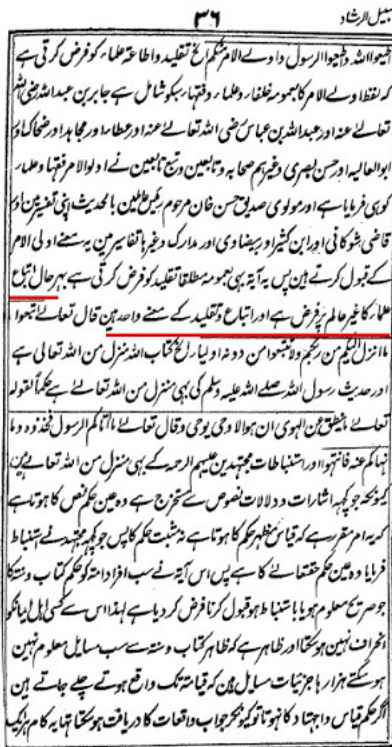 سبیل الرشاد ۳۶
اطیعوا اللہ و اطیعوا الرسول و اولے الامر منکم الخ تقلید و اطاعۃ علماء کو فرض کرتی ہے
کہ لفظ اولے الامر کا بعمومہ خلفاء و علماء و فقہاء سبکو شامل ہے جابر بن عبداللہ رضی اللہ
تعالے عنہ اور عبداللہ بن عباس رضی اللہ تعالے عنہ اور عطاء اور مجاہد اور ضحاک اور
ابو العالیہ اور حسن بصری وغیرہم صحابہ و تابعین و تبع تابعین نے اولو الامر فقہا و علماء
کو ہی فرمایا ہے اور مولوی صدیق حسن خان مرحوم رئیس عاملین بالحدیث اپنی تفسیر مین اور
قاضی شوکانی اور ابن کثیر اور بیضاوی اور مدارک وغیرہا تفاسیر مین یہ معنے اولی الامر
کے قبول کرتے ہین پس یہ آیۃ بہی بعمومہ مطلقا تقلید کو فرض کرتی ہے بہر حال اتباع
علماء کا غیر عالم پر فرض ہے اور اتباع و تقلید کے معنے واحد ہین قال تعالے اتبعوا
ما انزل الیکم من ربکم ولا تتبعوا من دونہ اولیاء الخ کتاب اللہ منزل من اللہ تعالی ہے
اور حدیث رسول اللہ صلے اللہ علیہ وسلم کی بہی منزل من اللہ تعالے ہے حکماً لقولہ
تعالے ما ینطق عن الہوی ان ہو الا وحی یوحی وقال تعالے ما اٰتاکم الرسول فخذوہ وما
نہاکم عنہ فانتہوا اور استنباطات مجتہدین علیہم الرحمہ کے بہی منزل من اللہ تعالے ہین
کیونکہ جو کچہہ اشارات و دلالات نصوص سے مستخرج ہے وہ عین حکم نص کا ہوتا ہے
کہ یہ امر مقرر ہے کہ قیاس مظہر حکم کا ہوتا ہے نہ مثبت حکم کا پس جو کچہہ مجتہد نے استنباط
فرمایا وہ عین حکم حقتعالے کا ہے پس اس آیۃ نے سب افراد امۃ کو حکم کتاب و سنۃ کا
جو صریح معلوم ہو یا باستنباط ہو قبول کرنا فرض کر دیا ہے لہذا اس سے کسی اہل ایمان کو
انحراف نہین ہو سکتا اور ظاہر ہے کہ ظاہر کتاب و سنۃ سے سب مسایل معلوم نہین
ہو سکتے ہزارہا جزئیات مسایل ہین کہ قیامۃ تک واقع ہوتے چلے جاتے ہین
اگر حکم قیاس و اجتہاد کا نہوتا تو کیونکر جواب واقعات کا دریافت ہو سکتا تہا یہ کام ہر یک